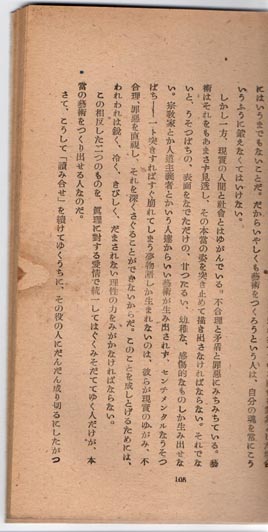 にはいうまでもないことだ。だからいやしくも藝術をつくろうという人は、自分の魂を常にこう
いうふうに鍛えなくてはいけない。
しかし一方、現実の人間と社会とはゆがんでいる。不合理と矛盾と罪悪にみちみちている。藝
術はそれをもあまさず見透し、その本當の姿を突き止めて描き出さなければならない。それでな
いと、うそっぱちの、表面をなでただけの、甘つたるい、幼稚な、感傷的なものしか生み出せな
い。宗教家とか人道主義者とかいう人達からいい藝術が生み出されず、センチメンタルなうそつ
ぱち――一ト突きすればすぐ崩れてしまう夢物語しか生まれないのは、彼らが現実のゆがみ、不
合理、罪惡を直視し、それを深くさぐることができないからだ。このことを成しとげるためには、
われわれは鋭く、冷く、きびしく、だまされない理性の力をみがかなければならない。
この相反した二つのものを、眞理に対する愛情で統一してはぐくみそだててゆく人だけが、本
當の藝術をつくり出せる人なのだ。
さて、こうして「讀み合せ」を續けてゆくうちに、その役の人にだんだん成り切るにしたがつ
108